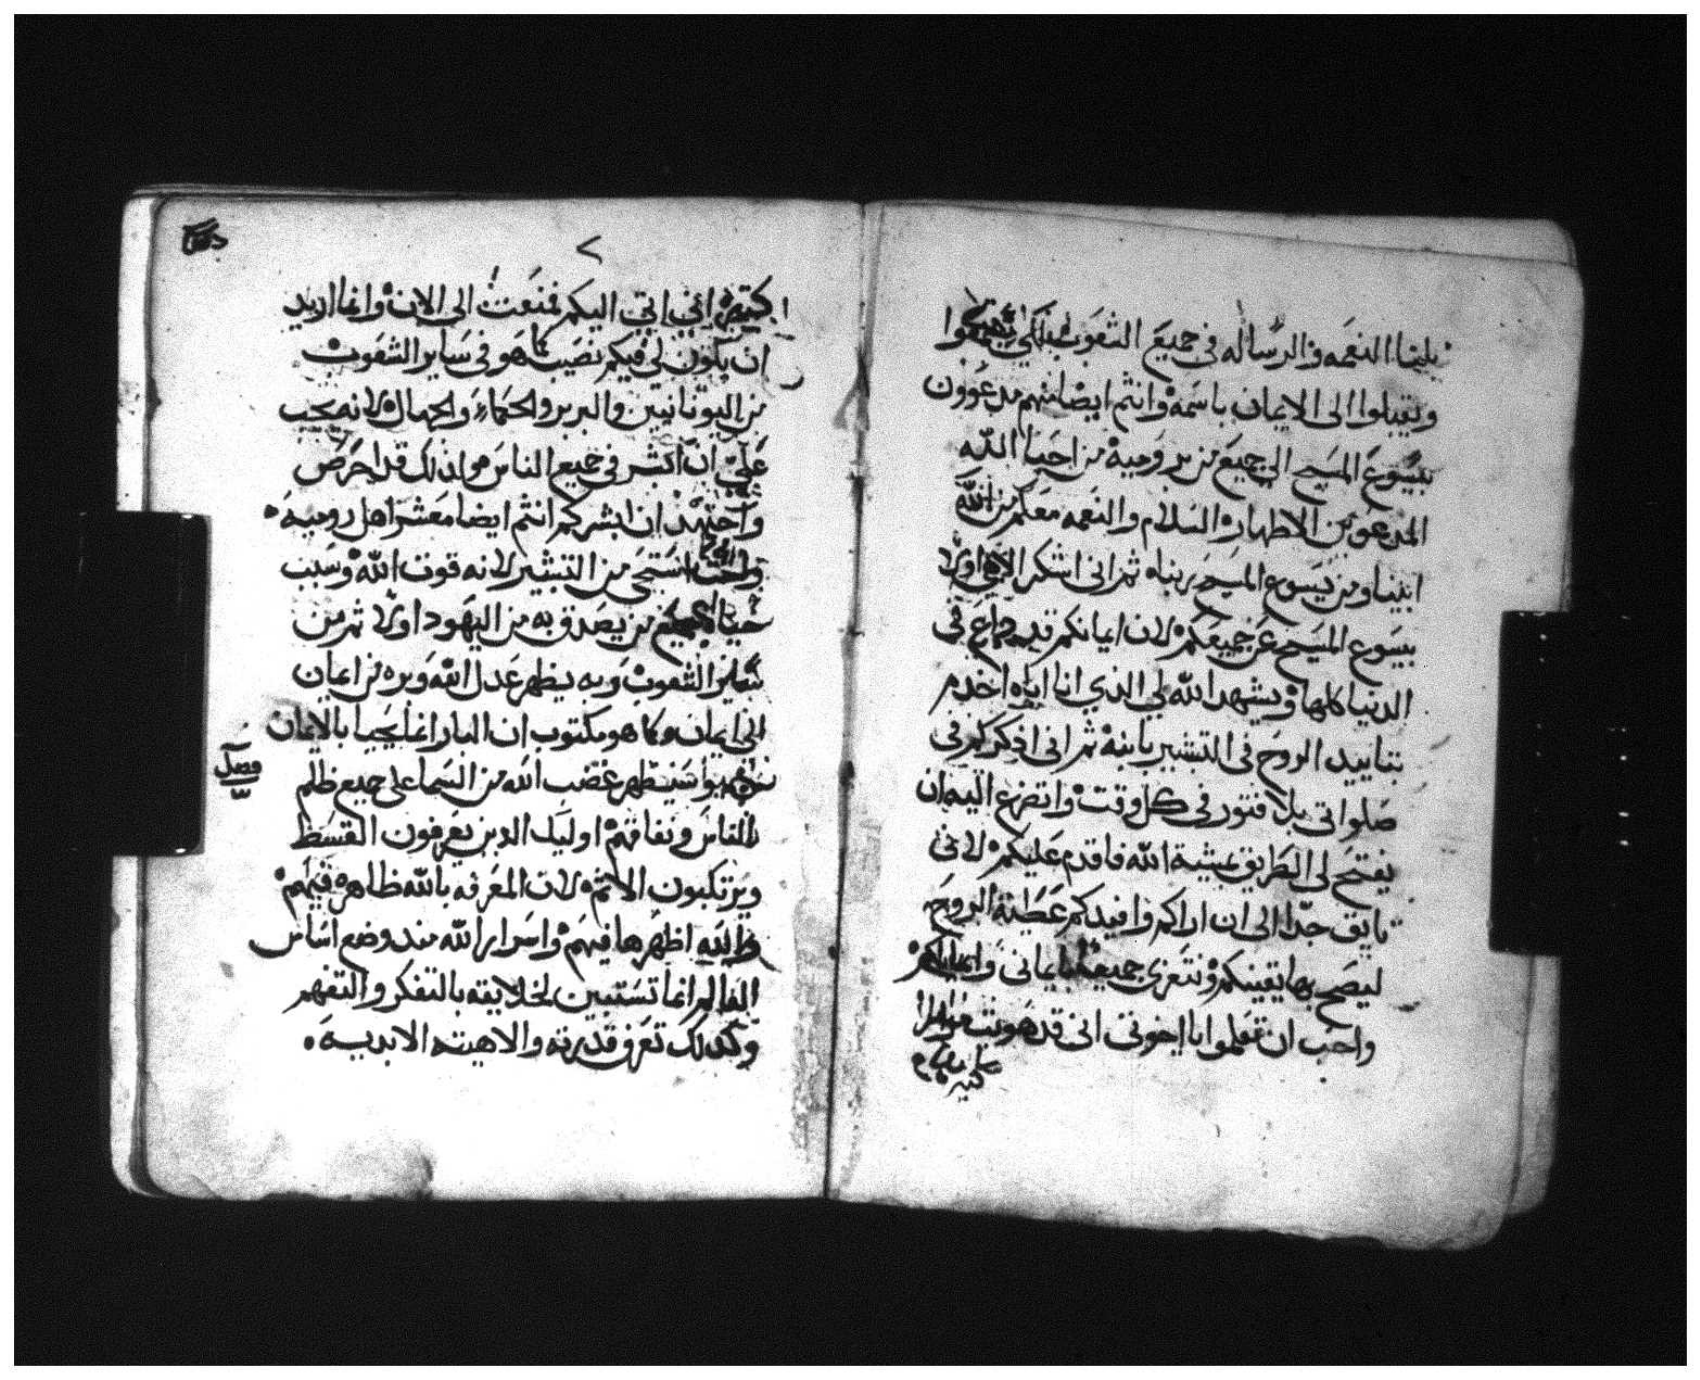 نلنا النعمه والرساله فى جميع الشعوب لكى يسمعوا
ويقبلوا الى الايمان باسمه وانتم ايضا منهم مدعوون
بيسوع المسيح الى جميع من بروميه من احبا الله
المدعوين الاطهاره السلام والنعمه معكم من الله
ابينا ومن يسوع المسيح ربنا ثم انى اشكر الاهى اولا
بيسوع المسيح عن جميعكم لان ايمانكم قد ذاع فى
الدنيا كلها ويشهد الله لي الذي انا اياه اخدم
بتاييد الروح فى التبشير بابنه ثم انى اذكركم فى
صلواتى بلا فتور فى كل وقت واتضرع اليه ان
يفتح لى الطريق بمشية الله فاقدم عليكم لانى
تايق جدا الى ان اراكم وافيدكم عطية الروح
ليصح بها يقينكم ونتعزى جميعا بايمانى وايمانكم
واحب ان تعلموا يا اخوتى انى قد هويت مرارا
كثيره
ان اتي اليكم فمنعت الى الان وانما اريد
ان يكون لى فيكم نصيب كما هو فى ساير الشعوب
من اليونانيين والبربر والحكماء والجهال لانه يجب
على ان ابشر فى جميع الناس ولذلك قد احرص
واجتهد ان ابشركم انتم ايضا معشر اهل روميه
استحى من التبشير لانه قوت الله وسبب
حياة من يصدق به من اليهود اولا ثم من
ساير الشعوب وبه يظهر عدل الله وبره من ايمان
الى ايمان وكما هو مكتوب ان البار انما يحيا بالايمان
فصل
سيظهر غضب الله من السما على جميع ظلم
الناس ونفاقهم اوليك الدين يعرفون القسط
ويرتكبون الاثم لان المعرفه بالله ظاهره فيهم
والله اظهرها فيهم واسرار الله منذ وضع اساس
العالم انما تستبين لخلايقه بالتفكر والتفهم
وكدلك تعرف قدرته والاهيته الابديه